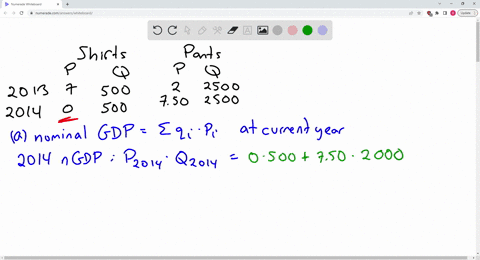 Shirts Pants
P Q P Q
2013 7 500 2 2500
2014 0 500 7.50 2500
(a) nominal GDP = Σ qi · Pi at current year
2014 nGDP : P2014 · Q2014 = 0·500 + 7.50 · 2000